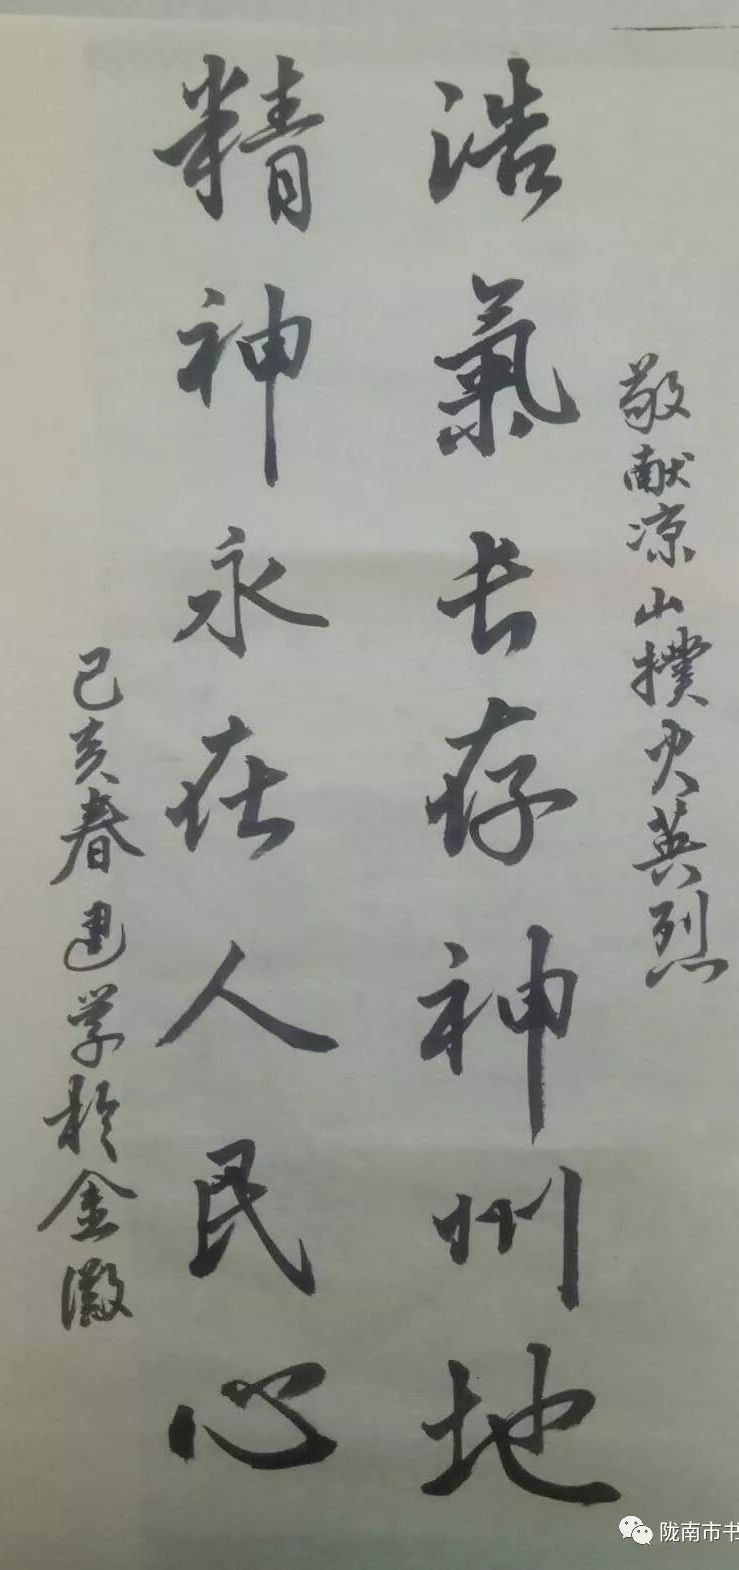 敬献凉山撲火英烈
浩氣长存神州地
精神永在人民心
己亥春建学於金徽
陇南市书